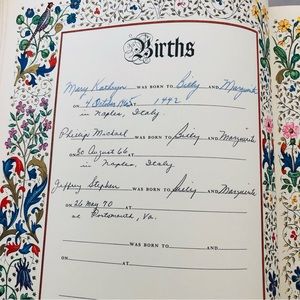 Births
Mary Kathryn WAS BORN TO Billy AND Marguerite
ON 4 October 1965 AT 1442
in Naples, Italy.
Phillip Michael WAS BORN TO Billy AND Marguerite
ON 30 August 66 AT
in Naples, Italy
Jeffrey Stephen WAS BORN TO Billy AND Marguerite
ON 26 May 70 AT
at Portsmouth, Va.
WAS BORN TO AND
ON AT
WAS BORN TO AND